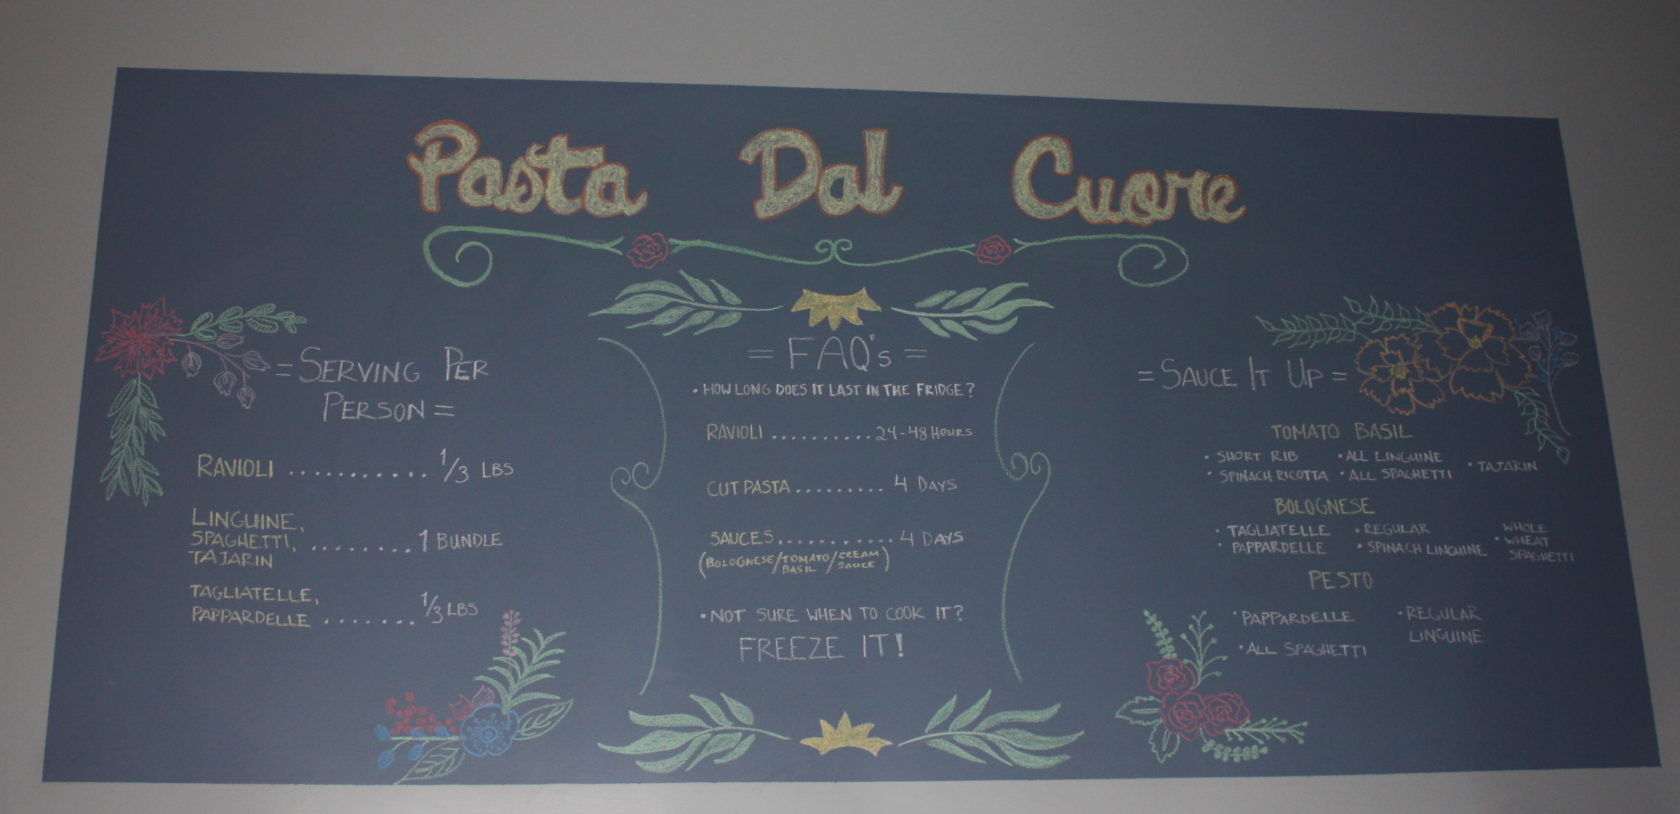 Pasta Dal Cuore
= SERVING PER
PERSON =
RAVIOLI ........... 1/3 LBS
LINGUINE,
SPAGHETTI, ......... 1 BUNDLE
TAJARIN
TAGLIATELLE,
PAPPARDELLE ....... 1/3 LBS
= FAQ's =
• HOW LONG DOES IT LAST IN THE FRIDGE?
RAVIOLI .......... 24-48 HOURS
CUT PASTA......... 4 DAYS
SAUCES........... 4 DAYS
(BOLOGNESE/TOMATO BASIL/CREAM SAUCE)
• NOT SURE WHEN TO COOK IT?
FREEZE IT!
= SAUCE IT UP =
TOMATO BASIL
• SHORT RIB • ALL LINGUINE
• SPINACH RICOTTA • ALL SPAGHETTI • TAJARIN
BOLOGNESE
• TAGLIATELLE • REGULAR
• PAPPARDELLE • SPINACH LINGUINE
• WHOLE
WHEAT
SPAGHETTI
PESTO
• PAPPARDELLE • REGULAR
LINGUINE
• ALL SPAGHETTI